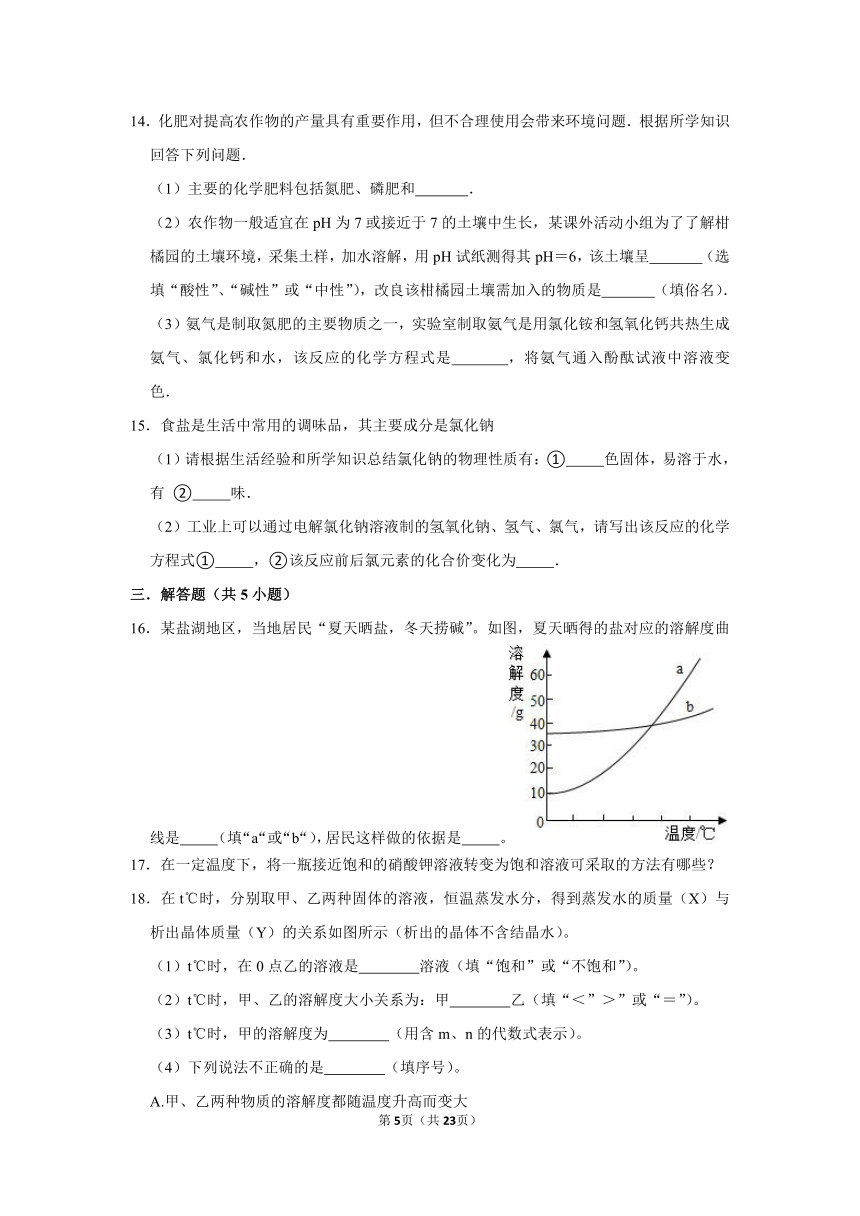 14．化肥对提高农作物的产量具有重要作用，但不合理使用会带来环境问题．根据所学知识
回答下列问题．
（1）主要的化学肥料包括氮肥、磷肥和_______．
（2）农作物一般适宜在 pH 为 7 或接近于 7 的土壤中生长，某课外活动小组为了了解柑
橘园的土壤环境，采集土样，加水溶解，用 pH 试纸测得其 pH＝6，该土壤呈_______（选
填“酸性”、“碱性”或“中性”），改良该柑橘园土壤需加入的物质是_______（填俗名）．
（3）氨气是制取氮肥的主要物质之一，实验室制取氨气是用氯化铵和氢氧化钙共热生成
氨气、氯化钙和水，该反应的化学方程式是_______，将氨气通入酚酞试液中溶液变
色．
15．食盐是生活中常用的调味品，其主要成分是氯化钠
（1）请根据生活经验和所学知识总结氯化钠的物理性质有：①_____色固体，易溶于水，
有 ②_____味．
（2）工业上可以通过电解氯化钠溶液制的氢氧化钠、氢气、氯气，请写出该反应的化学
方程式①_____，②该反应前后氯元素的化合价变化为_____．
三．解答题（共 5 小题）
16．某盐湖地区，当地居民“夏天晒盐，冬天捞碱”。如图，夏天晒得的盐对应的溶解度曲
溶解度/g
60
50
40
30
20
10
0
a
b
温度/℃
线是_____（填“a“或“b“），居民这样做的依据是_____。
17．在一定温度下，将一瓶接近饱和的硝酸钾溶液转变为饱和溶液可采取的方法有哪些？
18．在 t℃时，分别取甲、乙两种固体的溶液，恒温蒸发水分，得到蒸发水的质量（X）与
析出晶体质量（Y）的关系如图所示（析出的晶体不含结晶水）。
（1）t℃时，在 0 点乙的溶液是________溶液（填“饱和”或“不饱和”）。
（2）t℃时，甲、乙的溶解度大小关系为：甲________乙（填“＜”＞”或“＝”）。
（3）t℃时，甲的溶解度为________（用含 m、n 的代数式表示）。
（4）下列说法不正确的是________（填序号）。
A.甲、乙两种物质的溶解度都随温度升高而变大
第 5页（共 23页）